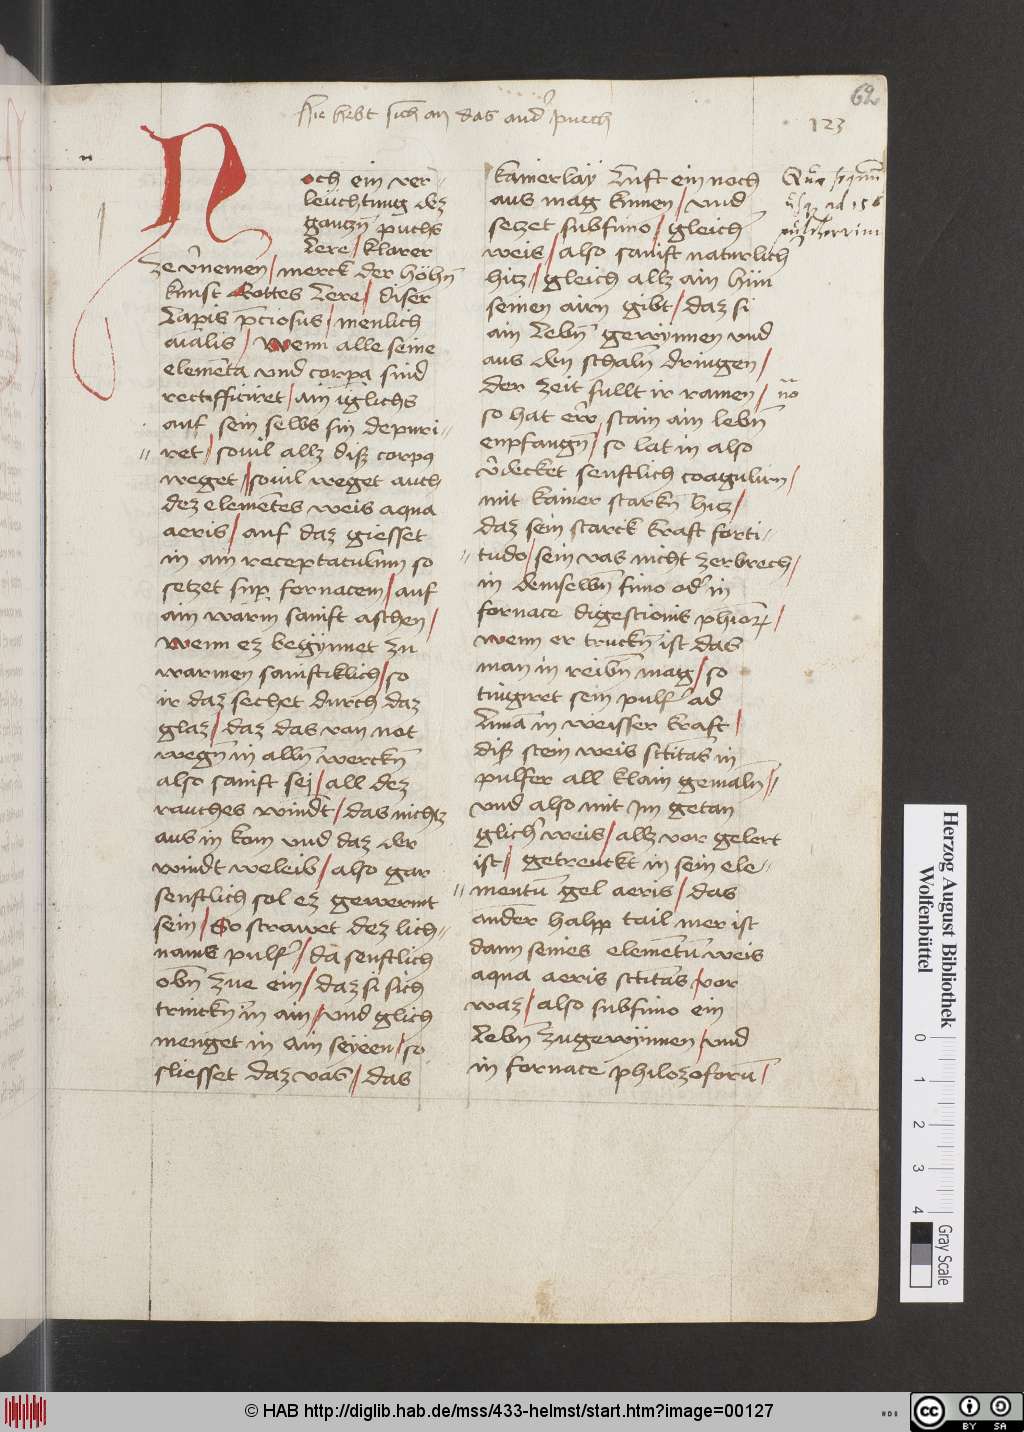 62
123
Hie hebt sich an das and' puech
Noch ein ver-
leuchtung dez
ganczn̄ puchs
Lere / klarer
ze v̄nemen / merck der höhn̄
kunst Gottes Lere / diser
Lapis p̄ciosus / menlich
aialis / Wenn alle seine
elemēta vnd corpa sind
rectifficiret / ain iglichs
auf sein selbs sin depuri=
ret / souil allz diß corpꝰ
weget / souil weget auch
dez elemētes weis aqua
aeris / auf daz giesset
in ain receptaculum so
setzet sup fornacem / auf
ain warm sanift aschen /
Wenn ez begÿnnet zu
warmen sanftiklich / so
ir daz sechet durch daz
glaz / daz das van not
wegn̄ in alln̄ werckn̄
also sanift sej / all dez
rauches windt / das nichtz
aus in kom vnd daz der
windt weleib / also gar
senftlich sol ez gewermt
sein / So strawet dez lich=
nams pulf' / da senftlich
obn̄ zue ein / daz si sich
trinckn̄ in ain / vnd glich
menget in ain seyeen / so
sliesset daz vas / das
kainerlaÿ Luft ein noch
aus mag kumen / vnd
setzet subfimo / gleich'
weis / also sanift naturlich'
hicz / gleich allz ain hun
seinen airn gibt / daz si
ain Lebn̄ gewynnen vnd
aus den schaln̄ dringen /
der zeit fullt ir ramen /
so hat ewr stain ain lebn̄
enpfangn̄ / so lat in also
v̄decket senftlich coagulirn /
mit kainer starkn̄ hicz /
daz sein starck kraft forti=
tudo / sein vas nicht zerbrech /
in demselbn̄ fimo od' in
fornace digestionis phiorꝝ /
wenn er truckn̄ ist das
man in reibn̄ mag / so
tingiret sein pulf' ad
Lunā in weisser kraft /
diß stein weis sctitas in
pulfer all klain gemaln̄ //
vnd also mit Im getan
glich' weis / allz vor gelert
ist / getrenckt in sein ele=
mentū gel aeris / das
ander halpp tail mer ist
dann seines elemētū weis
aqua aeris sctitas / vor
waz / also subfimo ein
Lebn̄ zugewynnen / vnd
in fornace philozoforū /
Herzog August Bibliothek
Wolfenbüttel
0 1 2 3 4
Gray Scale
© HAB http://diglib.hab.de/mss/433-helmst/start.htm?image=00127
HAB
cc BY SA